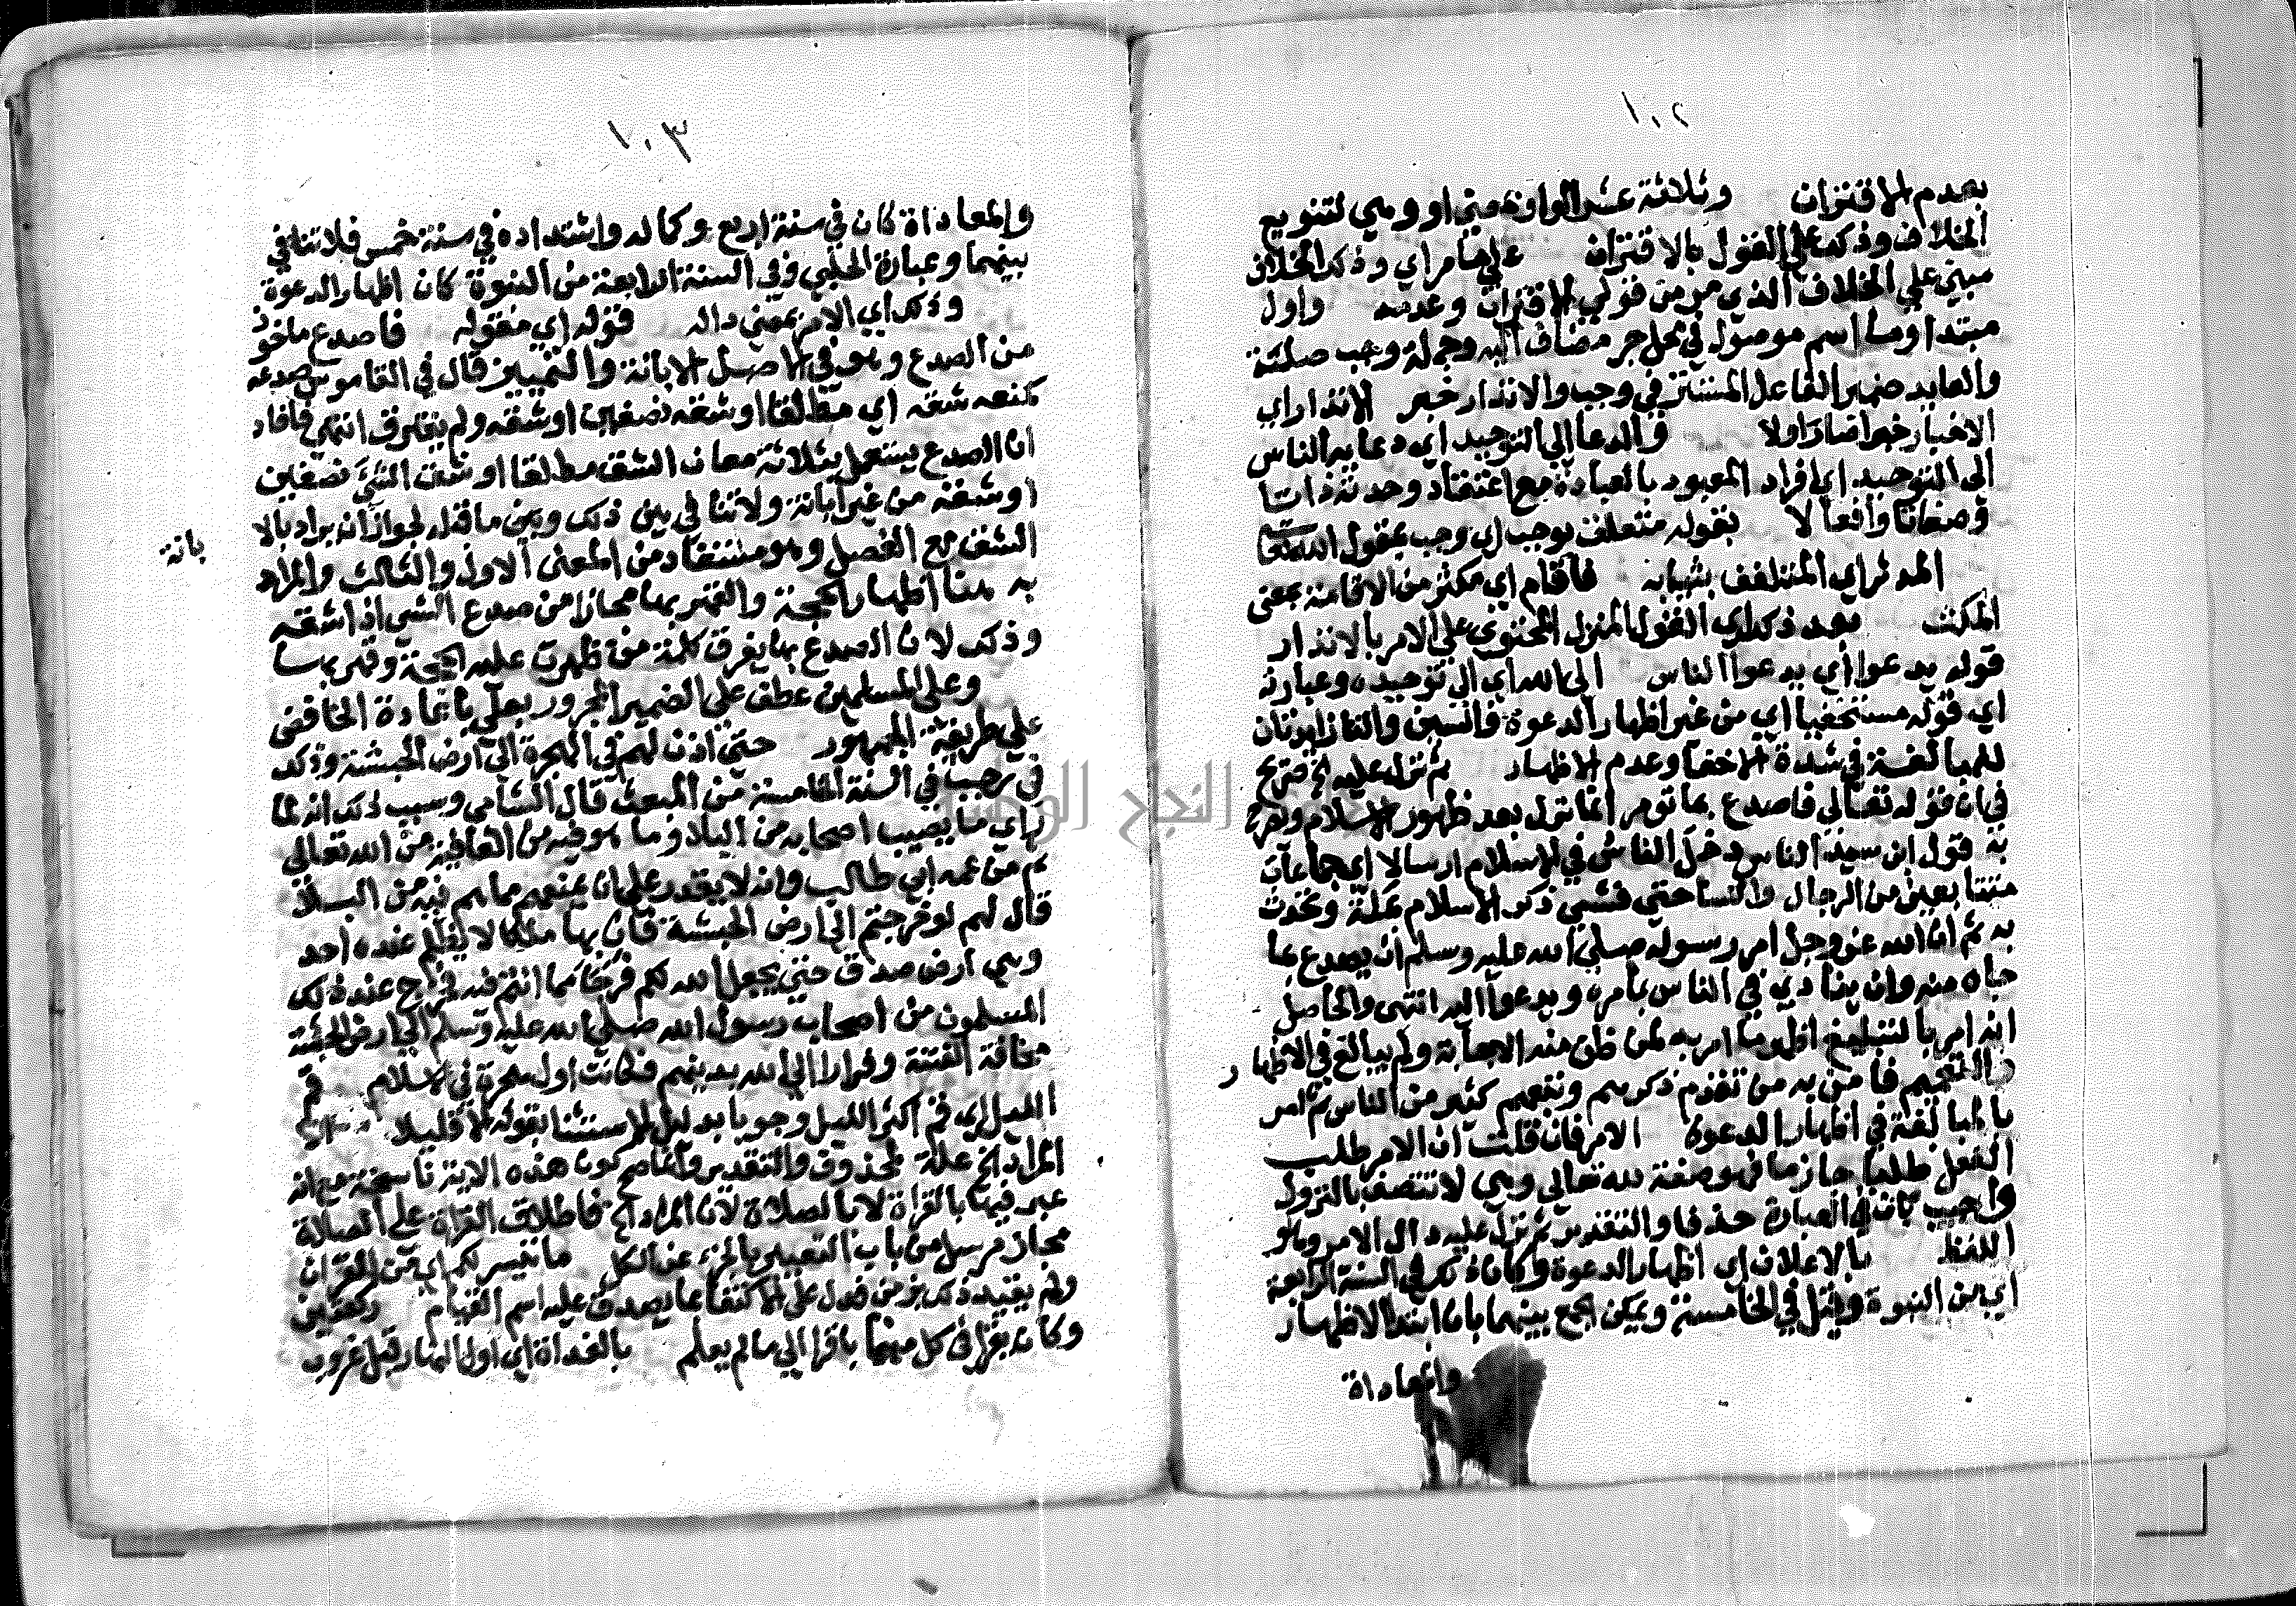 ١٠٢
بعدم الاقتران وثلاثة عشر الواو بمعني او وهي لتنويع
الخلاف وذكر علي القول بالاقتران علي ما مر اي وذكر الخلاف
مبني علي الخلاف الذي مر من قولي الاقتران وعدمه واول
مبتدا وما اسم موصول في محل جر مضاف اليه وجملة وجب صلته
والعايد ضمير الفاعل المستتر في وجب والانذار خبر الانذار اي
الاخبار خيرا ضارا اولا والدعا الي التوحيد اي دعا به الناس
الى التوحيد اي افراد المعبود بالعبادة مع اعتقاد وحدته ذاتا
وصفاتا وافعالا بقوله متعلق بوجب اي وجب بقول الله تعا
المدثر اي المتلفف بثيابه فاقام اي مكث من الاقامة بمعني
المكث بعد ذكر اي القول المنزل المحتوي علي الامر بالانذار
قوله يدعوا اي يدعوا الناس الي الله اي الي توحيده وعبارته
اي قوله مستخفيا اي من غير اظهار الدعوة فالسين والتا زايدتان
للمبالغة في شدة الاخفا وعدم الاظهار ثم نزل عليه الخ صريح
في ان قوله تعالي فاصدع بما تومر انما نزل بعد ظهور الاسلام وصرح
به قول ابن سيد الناس دخل الناس في الاسلام ارسالا اي جماعات
متتابعين من الرجال والنسا حتي فشي ذكر الاسلام بمكة وتحدث
به ثم ان الله عز وجل امر رسوله صلي الله عليه وسلم ان يصدع بما
جاه منه وان ينادي في الناس بامره ويدعوا اليه انتهى والحاصل
انه امر بالتبليغ اول ما امر به لمن ظن منه الاجابة ولم يبالغ في الاظهار
والتعميم فامن به من تقدم ذكرهم وتبعهم كثير من الناس ثم امر
بالمبالغة في اظهار الدعوة الامر فان قلت ان الامر طلب
الفعل طلبا جازما فهو صفة لله تعالي وهي لا تتصف بالنزول
واجيب بان في العبارة حذفا والتقدير ثم نزل عليه دال الامر وهو
اللفظ بالاعلان اي اظهار الدعوة وكان ذكر في السنة الرابعة
اي من النبوة وقيل في الخامسة ويمكن الجمع بينهما بان ابتدا الاظهار
والمعاداة
١٠٣
والمعاداة كان في سنة اربع وكماله واشتداده في سنة خمس فلا تنافي
بينهما وعبارة الحلبي وفي السنة الرابعة من النبوة كان اظهار الدعوة
وذكر اي الامر بمعني داله قوله اي مقوله فاصدع ماخوذ
من الصدع وهو في الاصل الابانة والتمييز قال في القاموس صدعه
كمنعه شقه اي مطلقا او شقه نصفين او شقه ولم يفترق انتهي فافاد
ان الصدع يستعمل بثلاثة معان الشق مطلقا او شق الشئ نصفين
او شقه من غير ابانة ولا تنافي بين ذكر وبين ما قبله لجواز ان يراد بالا
بانة
الشق مع الفصل وهو مستفاد من المعنى الاول والثالث والمراد
به هنا اظهار الحجة والقهر بها مجازا من صدع الشي اذا شقه
وذكر لان الصدع بها يفرق كلمة من ظهرت عليه الحجة وقهر بها
وعلي المسلمين عطف علي الضمير المجرور بعلي باعادة الخافض
علي طريقة الجمهور حتي اذن لهم في الهجرة الي ارض الحبشة وذكر
في رجب في السنة الخامسة من المبعث قال الشامي وسبب ذكر انه لما
راي ما يصيب اصحابه من البلا وما هو فيه من العافية من الله تعالي
ثم من عمه ابي طالب وانه لا يقدر علي ان يمنعهم مما هم فيه من البلا
قال لهم لو خرجتم الي ارض الحبشة فان بها ملكا لا يظلم عنده احد
وهي ارض صدق حتي يجعل الله لكم فرجا مما انتم فيه فخرج عند ذلك
المسلمون من اصحاب رسول الله صلي الله عليه وسلم الي ارض الحبشة
مخافة الفتنة وفرارا الي الله بدينهم فكانت اول هجرة في الاسلام قم
الليل اي قم اكثر الليل وجوبا بدليل الاستثنا بقوله الا قليلا
المراد الخ علة لمحذوف والتقدير وانما صح كون هذه الاية ناسخة مع انه
عبر فيها بالقراة لا بالصلاة لان المراد الخ فاطلاق القراة علي الصلاة
مجاز مرسل من باب التعبير بالجزء عن الكل ما تيسر لكم اي من القران
ولم يقيد ذكر بزمن فدل علي الاكتفا بما يصدق عليه اسم القيام ركعتين
وكان يقرا في كل منهما باقرا الي ما لم يعلم بالغداة اي اول النهار قبل غروب
النجاح الوطنية